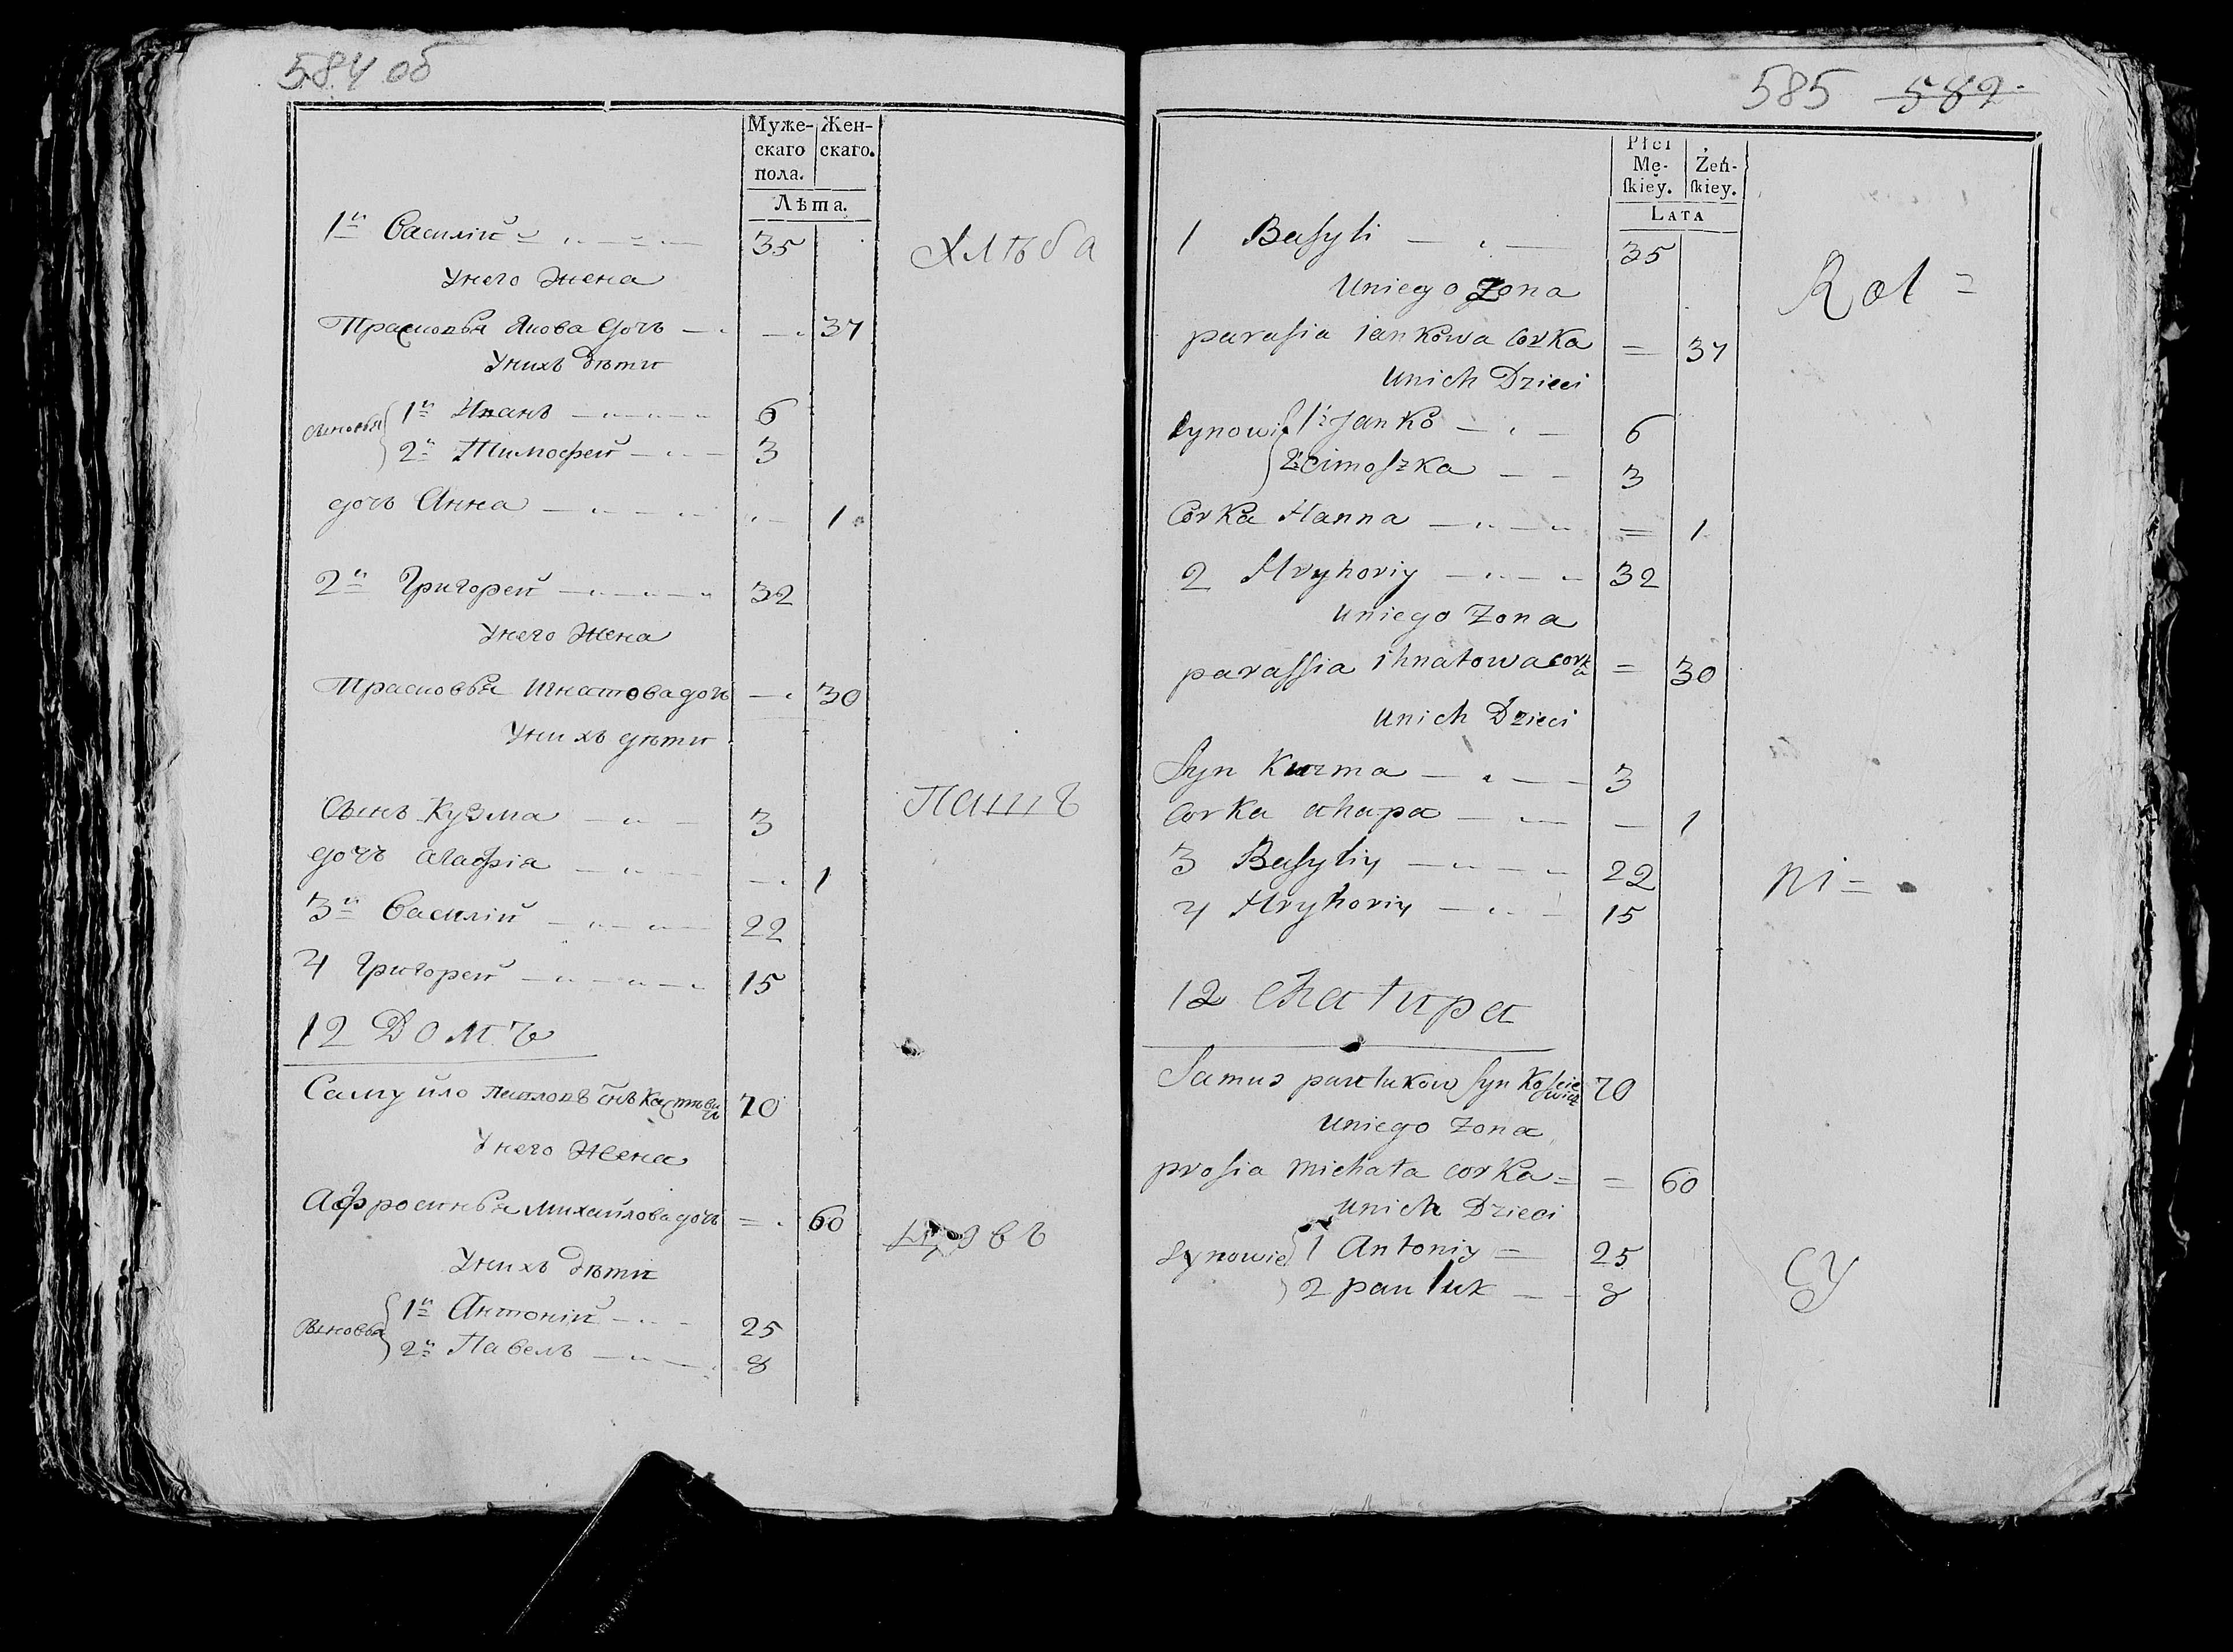 584 об
Муже- Жен-
скаго скаго.
пола.
Лѣта.
1й Василій 35
Хлѣба
Унего Жена
Прасковья Якова дочь 37
Унихъ дѣти
Сыновья 1й Иванъ 6
2й Тимофей 3
дочь Анна 1
2й Григорей 32
Унего Жена
Прасковья Игнатова дочь 30
Унихъ дѣти
Сынъ Кузма 3
Пашъ
дочь Агафія 1
3й Василій 22
4 Григорей 15
12 Домъ
Самуйло Павловъ снъ 70
Унего Жена
Афросинья Михайлова дочь 60
Унихъ дѣти
Сыновья 1й Антоній 25
2й Павелъ 8
585 582
Płci
Mę- Żeń-
ſkiey. ſkiey.
LATA
1 Baſyli 35
Rol =
Uniego Zona
paraſia iankowa Corka = 37
Unich Dzieci
Synowie 1 Janko 6
2 Cimoſzka 3
Corka Hanna = 1
2 Hryhoriy 32
Uniego Zona
paraſſia ihnatowa corka = 30
Unich Dzieci
Syn Kuzma 3
Corka ahapa 1
3 Baſyliy 22
ni =
4 Hryhoriy 15
12 Chałupa
Samus pawlukow Syn Koſciewicz 70
Uniego Zona
proſia Michała corka = = 60
Unich Dzieci
Synowie 1 Antoniy = 25
cy
2 pauluk 8